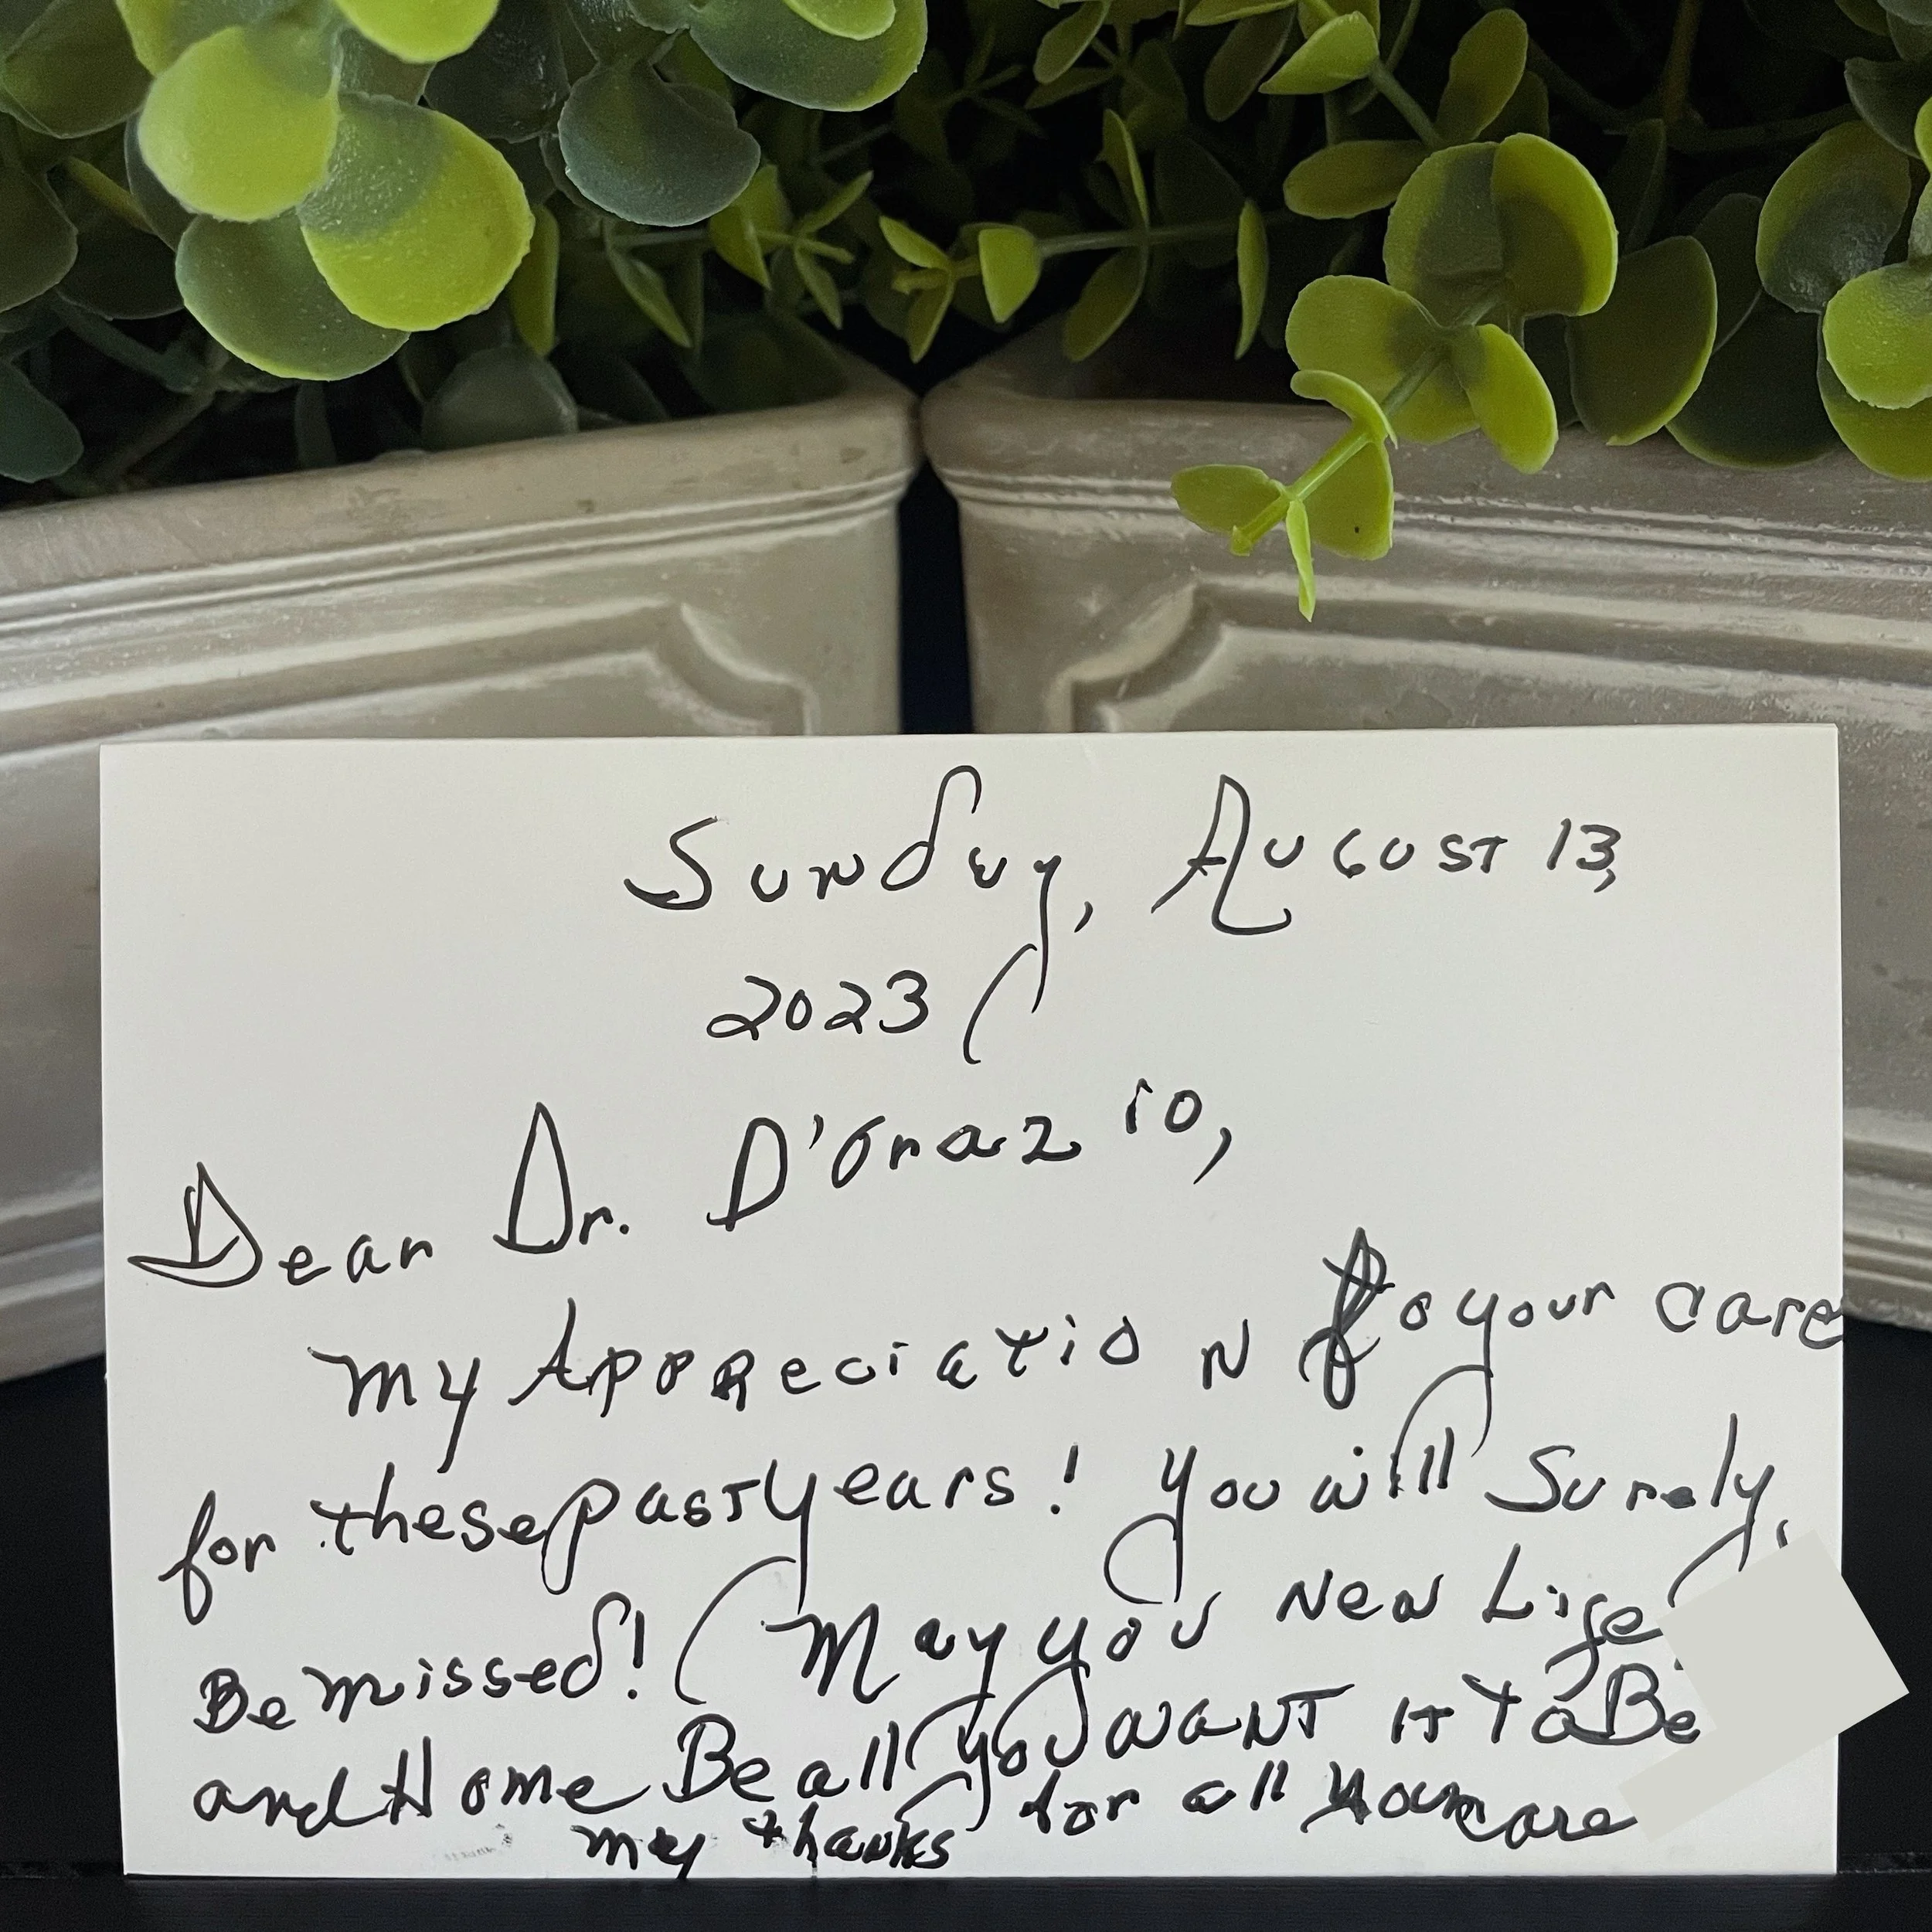 Sunday, August 13,
2023
Dear Dr. D'Orazio,
my Appreciation fo your care
for these past years! You will Surely
Be missed! May you New Life
and Home Be all you want it to Be
my thanks for all your care